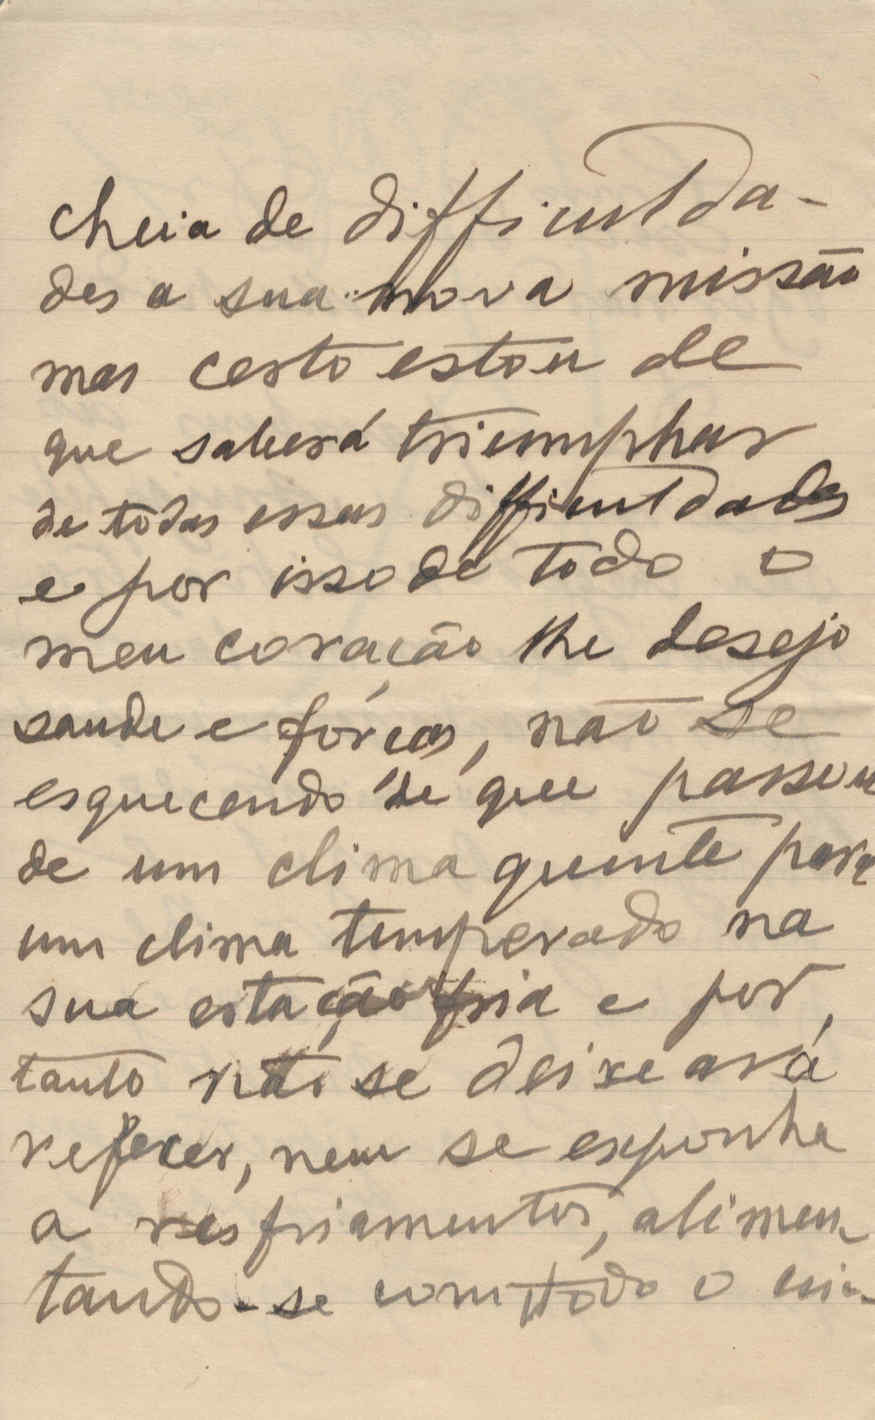 cheia de difficulda-
des a sua nova missão
mas certo estou de
que saberá triumphar
de todas essas difficuldades
e por isso de todo o
meu coração lhe desejo
saude e forças, não se
esquecendo de que passou
de um clima quente para
um clima temperado na
sua estação fria e por
tanto não se deixe
refecer, nem se exponha
a resfriamentos, alimen
tando-se com todo o